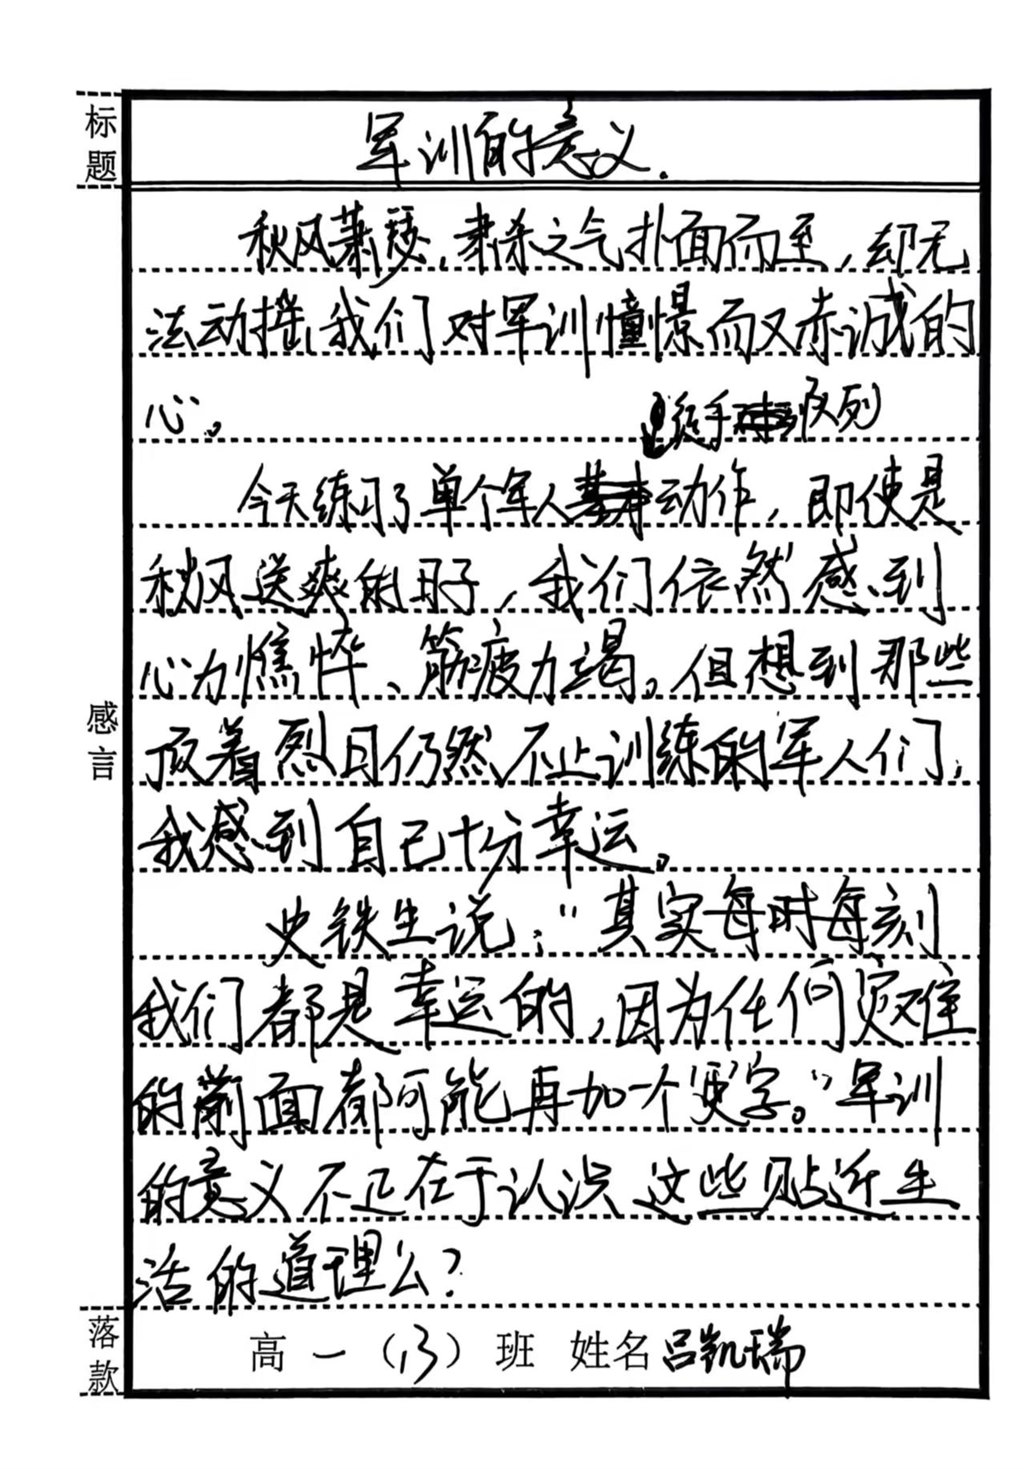 标题
军训的意义.
秋风萧瑟,肃杀之气扑面而至,却无
法动摇我们对军训憧憬而又赤诚的
心。
徒手队列
今天练习了单个军人动作,即使是
秋风送爽的日子,我们依然感到
心力憔悴、筋疲力竭。但想到那些
顶着烈日仍然不止训练的军人们,
我感到自己十分幸运。
感言
史铁生说:“其实每时每刻
我们都是幸运的,因为任何灾难
的前面都可能再加一个‘更’字。”军训
的意义不正在于认识这些贴近生
活的道理么?
落款
高一(13)班 姓名吕凯瑞